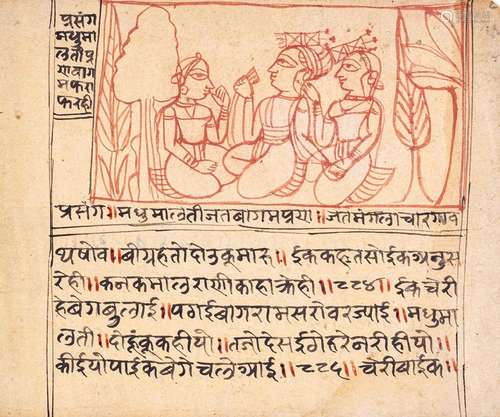 प्रसंग
मधुमा
लतीप्र
गाबाग
मकरा
करही
प्रसंग॥मधुमालतीजतबागमप्रगा॥जतमंगलाचारगाव
थषोव॥बीग्रहतोदोउकुमारु॥ईककहतसोईकग्यनुस
रेही॥कनकमालराणीकाहाकेही॥८८४॥ईकचेरी
हबेगबुलाई॥पगईबागरामसरोवरज्याई॥मधुमा
लती॥दोहूंकूकहीयो॥तजोदेसईगेहरेनरीहीयो॥
कीईयोपाईकबेगेचलेग्याई॥८८५॥चेरीबाईक॰